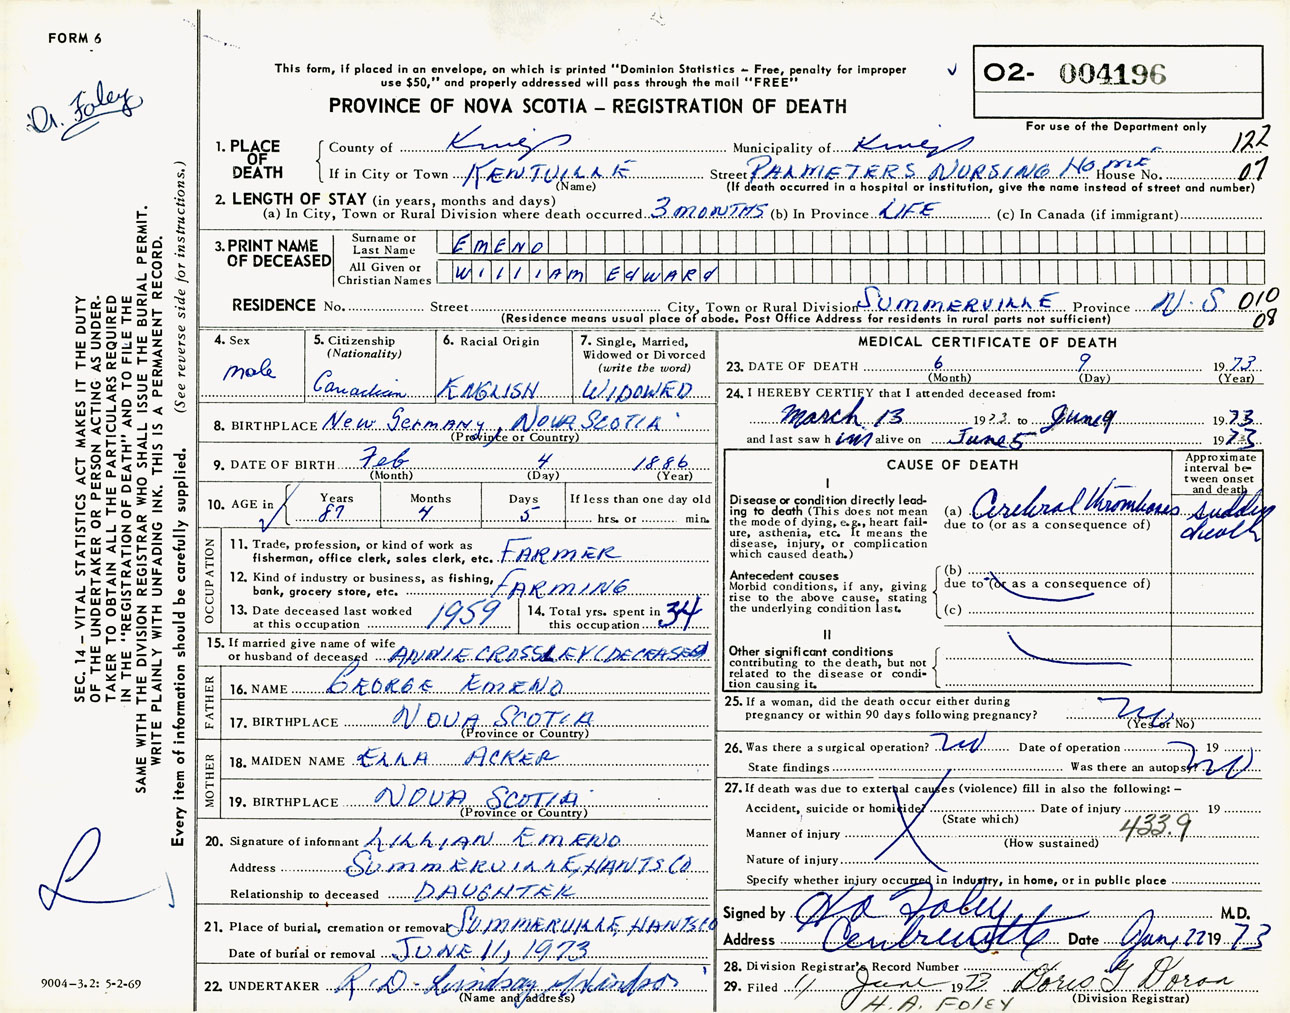 FORM 6
Dr. Foley
This form, if placed in an envelope, on which is printed "Dominion Statistics – Free, penalty for improper
use $50," and properly addressed will pass through the mail "FREE"
PROVINCE OF NOVA SCOTIA – REGISTRATION OF DEATH
02- 004196
For use of the Department only
1. PLACE OF DEATH County of Kings Municipality of Kings 122
If in City or Town KENTVILLE Street PALMETERS NURSING HOME House No. 07
(Name) (If death occurred in a hospital or institution, give the name instead of street and number)
2. LENGTH OF STAY (in years, months and days)
(a) In City, Town or Rural Division where death occurred 3 MONTHS (b) In Province LIFE (c) In Canada (if immigrant)
3. PRINT NAME OF DECEASED Surname or Last Name EMENO
All Given or Christian Names WILLIAM EDWARD
RESIDENCE No. Street City, Town or Rural Division SUMMERVILLE Province N.S 010
(Residence means usual place of abode. Post Office Address for residents in rural parts not sufficient) 08
4. Sex male
5. Citizenship (Nationality) Canadian
6. Racial Origin ENGLISH
7. Single, Married, Widowed or Divorced (write the word) WIDOWED
8. BIRTHPLACE New Germany, NOVA SCOTIA
(Province or Country)
9. DATE OF BIRTH Feb 4 1886
(Month) (Day) (Year)
10. AGE in Years 87 Months 4 Days 5 If less than one day old hrs. or min.
OCCUPATION
11. Trade, profession, or kind of work as fisherman, office clerk, sales clerk, etc. FARMER
12. Kind of industry or business, as fishing, bank, grocery store, etc. FARMING
13. Date deceased last worked at this occupation 1959
14. Total yrs. spent in this occupation 34
15. If married give name of wife or husband of deceased ANNIE CROSSLEY (DECEASED)
FATHER
16. NAME GEORGE EMENO
17. BIRTHPLACE NOVA SCOTIA
(Province or Country)
MOTHER
18. MAIDEN NAME ELLA ACKER
19. BIRTHPLACE NOVA SCOTIA
(Province or Country)
20. Signature of informant LILLIAN EMENO
Address SUMMERVILLE, HANTS CO
Relationship to deceased DAUGHTER
21. Place of burial, cremation or removal SUMMERVILLE, HANTS CO
Date of burial or removal JUNE 11, 1973
22. UNDERTAKER R. D. Lindsay Windsor
(Name and address)
MEDICAL CERTIFICATE OF DEATH
23. DATE OF DEATH 6 9 1973
(Month) (Day) (Year)
24. I HEREBY CERTIFY that I attended deceased from:
March 13 1973 to June 9 1973
and last saw him alive on June 5 1973
CAUSE OF DEATH
Approximate interval between onset and death
I
Disease or condition directly leading to death (This does not mean the mode of dying, e.g., heart failure, asthenia, etc. It means the disease, injury, or complication which caused death.)
(a) Cerebral thromboses sudden death
due to (or as a consequence of)
Antecedent causes
Morbid conditions, if any, giving rise to the above cause, stating the underlying condition last.
(b)
due to (or as a consequence of)
(c)
II
Other significant conditions
contributing to the death, but not related to the disease or condition causing it.
25. If a woman, did the death occur either during pregnancy or within 90 days following pregnancy? no
(Yes or No)
26. Was there a surgical operation? no Date of operation 19
State findings Was there an autopsy? no
27. If death was due to external causes (violence) fill in also the following: –
Accident, suicide or homicide? Date of injury 19
(State which)
Manner of injury 433.9
(How sustained)
Nature of injury
Specify whether injury occurred in industry, in home, or in public place
Signed by H A Foley M.D.
Address Date June 22 1973
28. Division Registrar's Record Number
29. Filed 11 June 1973 Doris G Doran
(Division Registrar)
H. A. FOLEY
SEC. 14 – VITAL STATISTICS ACT MAKES IT THE DUTY
OF THE UNDERTAKER OR PERSON ACTING AS UNDER-
TAKER TO OBTAIN ALL THE PARTICULARS REQUIRED
IN THE "REGISTRATION OF DEATH" AND TO FILE THE
SAME WITH THE DIVISION REGISTRAR WHO SHALL ISSUE THE BURIAL PERMIT.
WRITE PLAINLY WITH UNFADING INK. THIS IS A PERMANENT RECORD.
Every item of information should be carefully supplied. (See reverse side for instructions.)
9004-3.2: 5-2-69